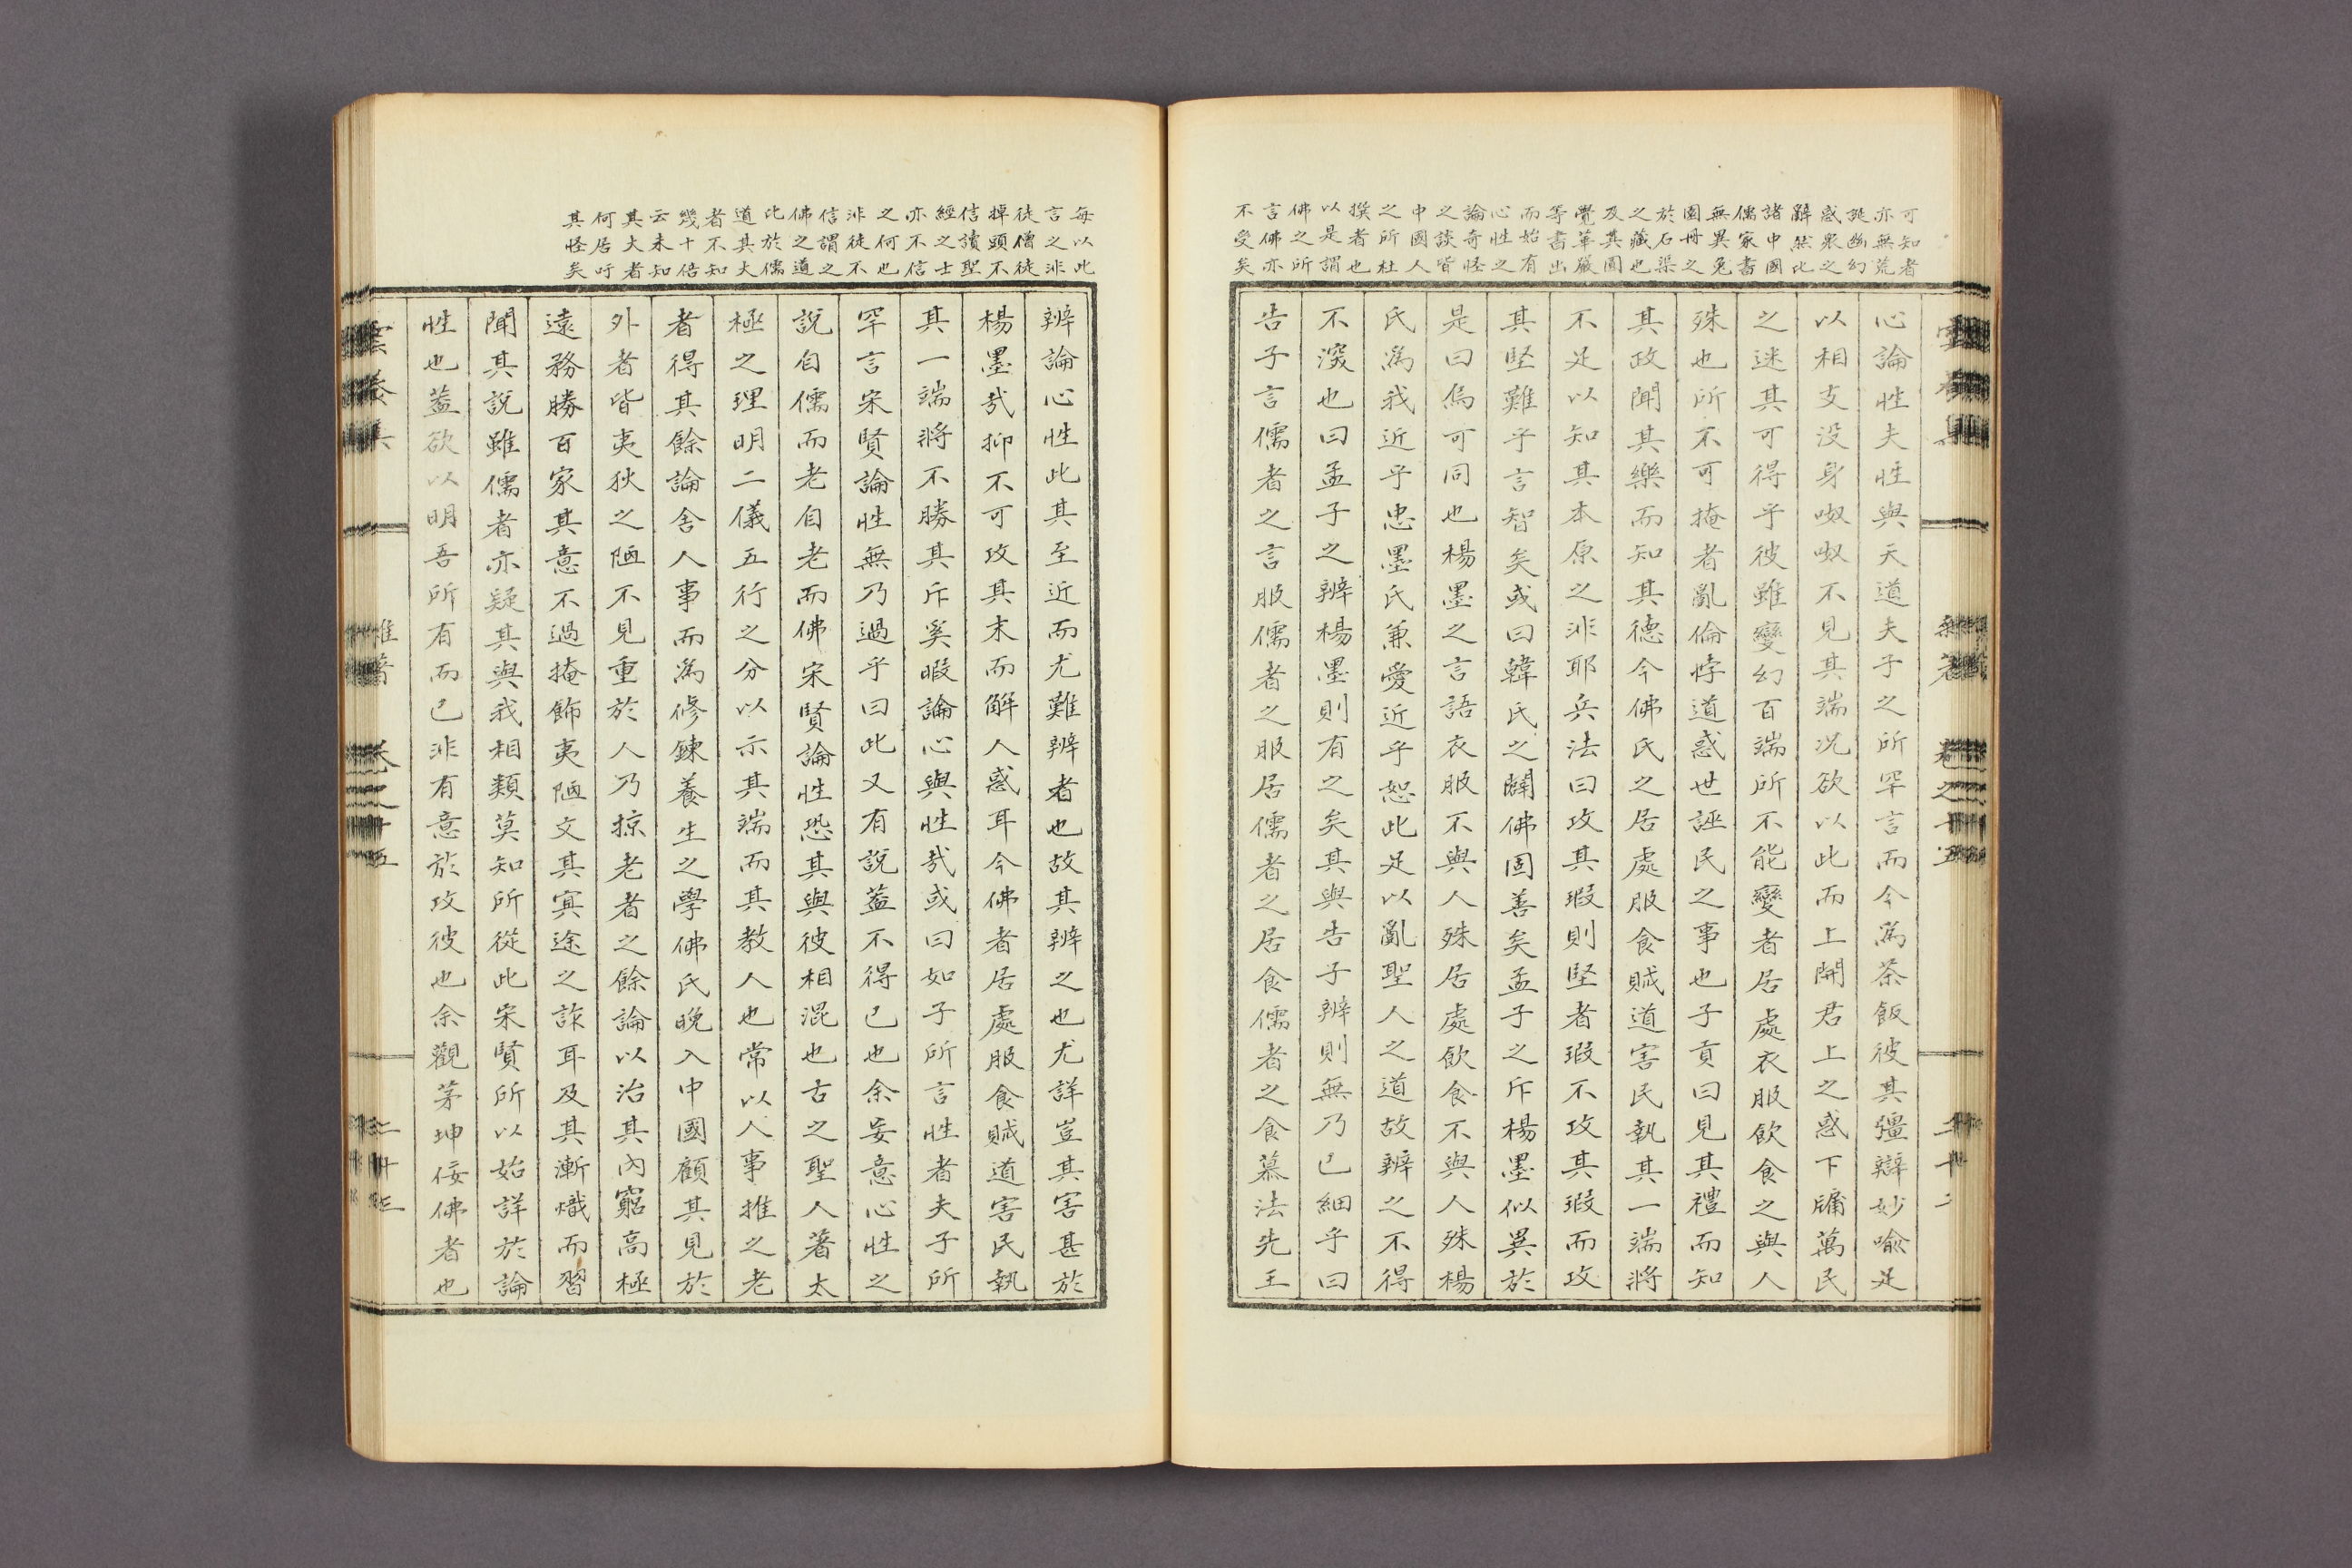 可知者
亦無荒
誕幽幻
惑眾之
辭然比
諸中國
儒家書
無異兔
園冊之
於石渠
之藏也
及其圓
覺華嚴
等書出
而始有
心性之
論奇怪
之談皆
中國人
之所杜
撰者也
以是謂
佛之所
言佛亦
不受矣
心論性夫性與天道夫子之所罕言而今為茶飯彼其彊辯妙喩足
以相支没身呶呶不見其端况欲以此而上開君上之惑下牖萬民
之迷其可得乎彼雖變幻百端所不能變者居處衣服飲食之與人
殊也所不可掩者亂倫悖道惑世誣民之事也子貢曰見其禮而知
其政聞其樂而知其德今佛氏之居處服食賊道害民執其一端將
不足以知其本原之非耶兵法曰攻其瑕則堅者瑕不攻其瑕而攻
其堅難乎言智矣或曰韓氏之闢佛固善矣孟子之斥楊墨似異於
是曰烏可同也楊墨之言語衣服不與人殊居處飲食不與人殊楊
氏為我近乎忠墨氏兼愛近乎恕此足以亂聖人之道故辨之不得
不深也曰孟子之辨楊墨則有之矣其與告子辨則無乃已細乎曰
告子言儒者之言服儒者之服居儒者之居食儒者之食慕法先王
雜著 卷之十五
二十二
每以此
言之非
徒僧徒
掉頭不
信讀聖
經之士
亦不信
之何也
非徒不
信謂之
佛之道
比於儒
道其大
者不知
幾十倍
云未知
其大者
何居吁
其怪矣
辨論心性此其至近而尤難辨者也故其辨之也尤詳豈其害甚於
楊墨哉抑不可攻其末而解人惑耳今佛者居處服食賊道害民執
其一端將不勝其斥奚暇論心與性哉或曰如子所言性者夫子所
罕言宋賢論性無乃過乎曰此又有說蓋不得已也余妄意心性之
說自儒而老自老而佛宋賢論性恐其與彼相混也古之聖人著太
極之理明二儀五行之分以示其端而其教人也常以人事推之老
者得其餘論舍人事而為修鍊養生之學佛氏晚入中國顧其見於
外者皆夷狄之陋不見重於人乃掠老者之餘論以治其內窮高極
遠務勝百家其意不過掩飾夷陋文其冥途之詐耳及其漸熾而習
聞其說雖儒者亦疑其與我相類莫知所從此宋賢所以始詳於論
性也蓋欲以明吾所有而已非有意於攻彼也余觀茅坤佞佛者也